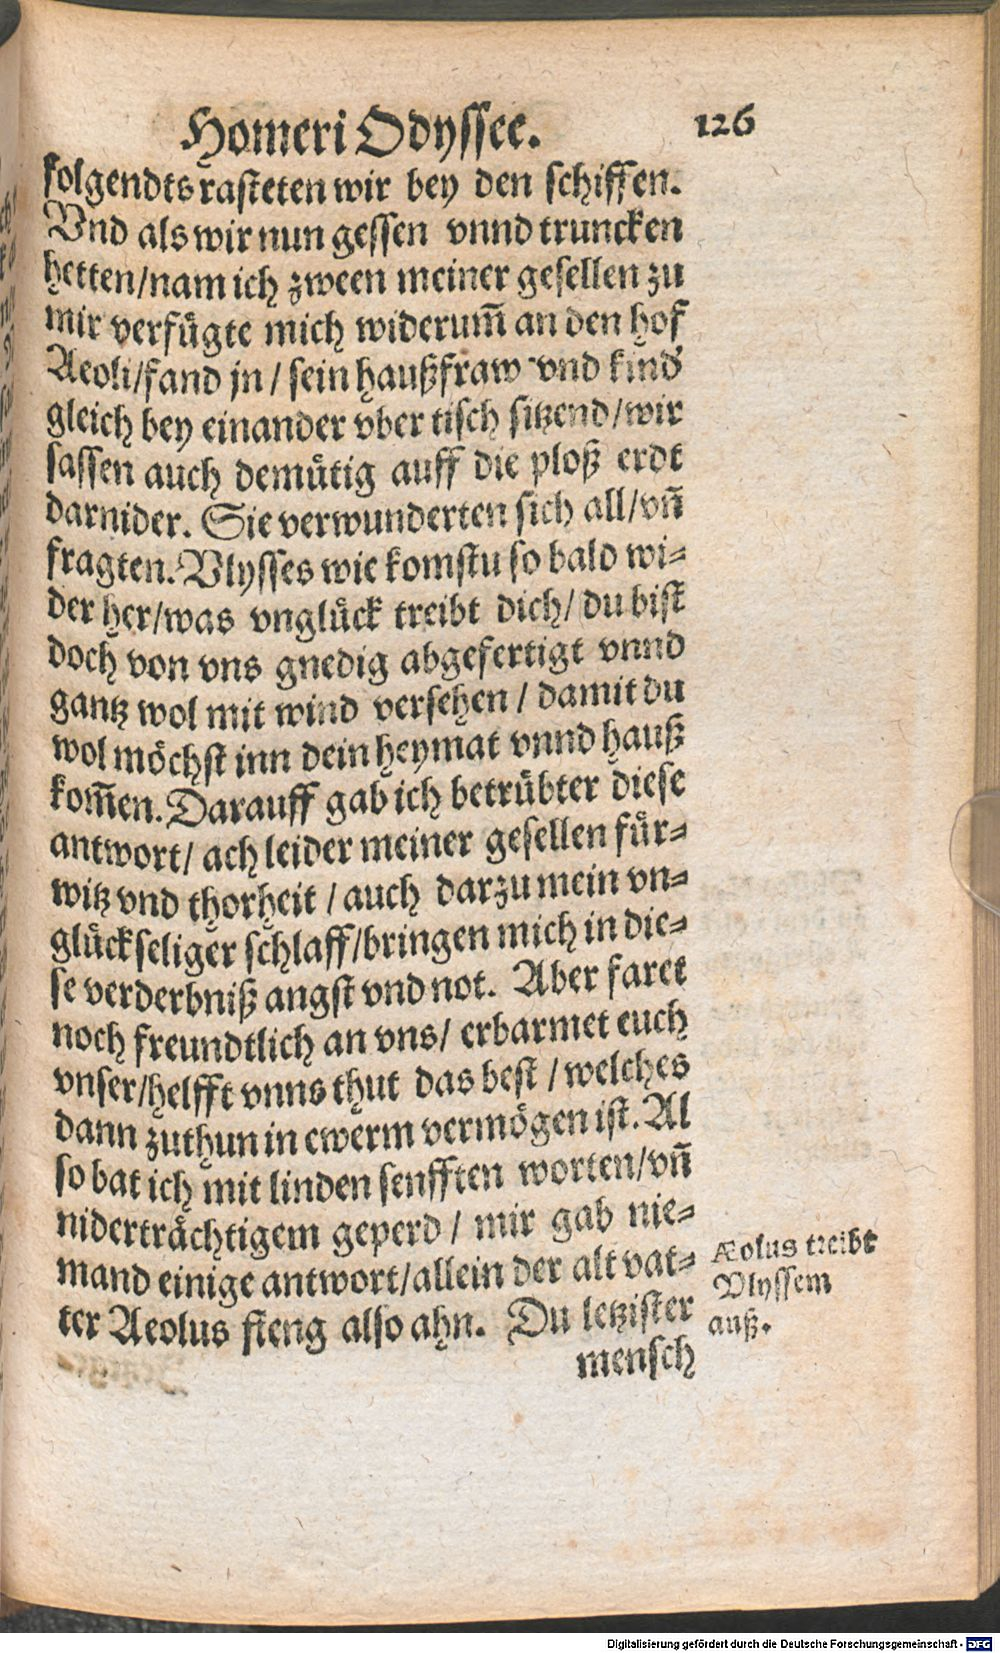 Homeri Odyssee. 126
folgendts rasteten wir bey den schiffen.
Vnd als wir nun gessen vnnd truncken
hetten/nam ich zween meiner gesellen zu
mir verfuͤgte mich widerum̃ an den hof
Aeoli/fand jn/ sein haußfraw vnd kind
gleich bey einander vber tisch sitzend/wir
sassen auch demuͤtig auff die ploß erdt
darnider. Sie verwunderten sich all/vñ
fragten. Vlysses wie komstu so bald wi⸗
der her/was vngluͤck treibt dich/ du bist
doch von vns gnedig abgefertigt vnnd
gantz wol mit wind versehen / damit du
wol moͤchst inn dein heymat vnnd hauß
kom̃en. Darauff gab ich betruͤbter diese
antwort/ ach leider meiner gesellen fuͤr⸗
witz vnd thorheit / auch darzu mein vn⸗
gluͤckseliger schlaff/bringen mich in die⸗
se verderbniß angst vnd not. Aber faret
noch freundtlich an vns/ erbarmet euch
vnser/helfft vnns thut das best / welches
dann zuthun in ewerm vermoͤgen ist. Al
so bat ich mit linden senfften worten/vñ
nidertraͤchtigem geperd / mir gab nie⸗
mand einige antwort/allein der alt vat⸗
ter Aeolus fieng also ahn. Du letzister
mensch
Æolus treibt
Vlyssem
auß.
Digitalisierung gefördert durch die Deutsche Forschungsgemeinschaft - DFG